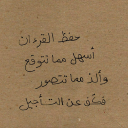 حفظ القرءان
أسهل مما تتوقع
وألذ مما تتصور
فكف عن التأجيل